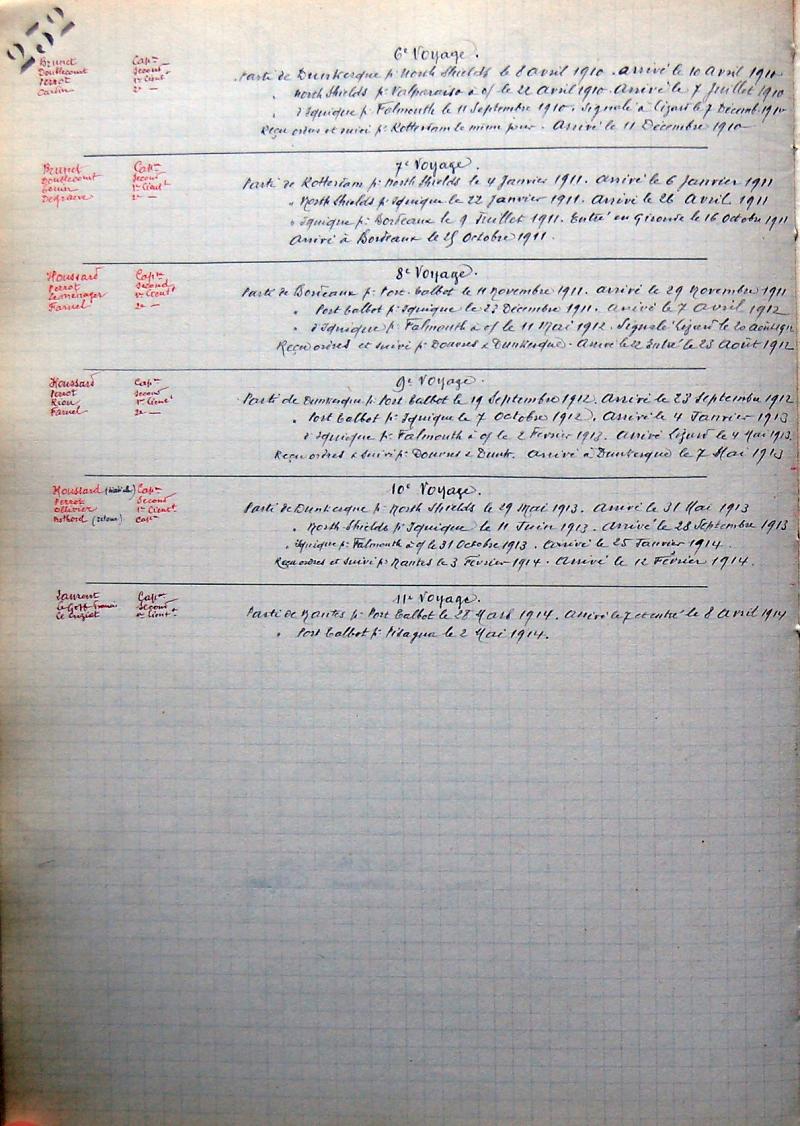 232
6e Voyage.
Brunet Capne
Doutlecourt Second
Perrot 1er Lieut
2e —
Parti de Dunkerque pr North Shields le 8 avril 1910. arrivé le 10 avril 1910
" North Shields pr Valparaiso à of le 22 avril 1910. Arrivé le 7 Juillet 1910
" d'Iquique pr Falmouth le 11 Septembre 1910. Signalé à Lizard le 7 Décemb. 1910
Reçu ordres et suivi pr Rotterdam le même jour. Arrivé le 11 Décembre 1910
7e Voyage.
Brunet Capne
Doutlecourt Second
1er Lieut
Degraeve 2e —
Parti de Rotterdam pr North Shields le 4 Janvier 1911. arrivé le 6 Janvier 1911
" North Shields pr Iquique le 22 Janvier 1911. Arrivé le 26 Avril 1911
" Iquique pr Bordeaux le 9 Juillet 1911. Entré en Gironde le 16 Octobre 1911
Arrivé à Bordeaux le 25 Octobre 1911.
8e Voyage.
Houssard Capne
Perrot Second
Lemenager 1er Lieut
Farnel 2e —
Parti de Bordeaux pr Port-Talbot le 11 Novembre 1911. arrivé le 29 Novembre 1911
" Port Talbot pr Iquique le 23 Décembre 1911. arrivé le 7 avril 1912
" d'Iquique pr Falmouth à of le 11 Mai 1912. Signalé Lizard le 20 Août 1912
Reçu ordres et suivi pr Douvres & Dunkerque. Arrivé le 22 Entré le 23 Août 1912
9e Voyage.
Houssard Capne
Perrot Second
Riou 1er Lieut
Farnel 2e —
Parti de Dunkerque pr Port Talbot le 19 Septembre 1912. Arrivé le 23 Septembre 1912
" Port Talbot pr Iquique le 7 Octobre 1912. Arrivé le 4 Janvier 1913
" d'Iquique pr Falmouth à of le 2 Février 1913. Arrivé Lizard le 4 Mai 1913.
Reçu ordres & suivi pr Douvres & Dunk. Arrivé à Dunkerque le 7 Mai 1913
10e Voyage.
Houssard Capne
Perrot Second
Ollivier 1er Lieut
(retour) Capne
Parti de Dunkerque pr North Shields le 29 Mai 1913. Arrivé le 31 Mai 1913
" North Shields pr Iquique le 11 Juin 1913. Arrivé le 28 Septembre 1913
" Iquique pr Falmouth à of le 31 Octobre 1913. Arrivé le 25 Janvier 1914.
Reçu ordres et suivi pr Nantes le 3 Février 1914. Arrivé le 12 Février 1914.
11e Voyage.
Laurent Capne
Le Goff Second
Lieut
Parti de Nantes pr Port Talbot le 28 Mars 1914. Arrivé le 7 et entré le 8 Avril 1914
" Port Talbot pr Pisagua le 2 Mai 1914.